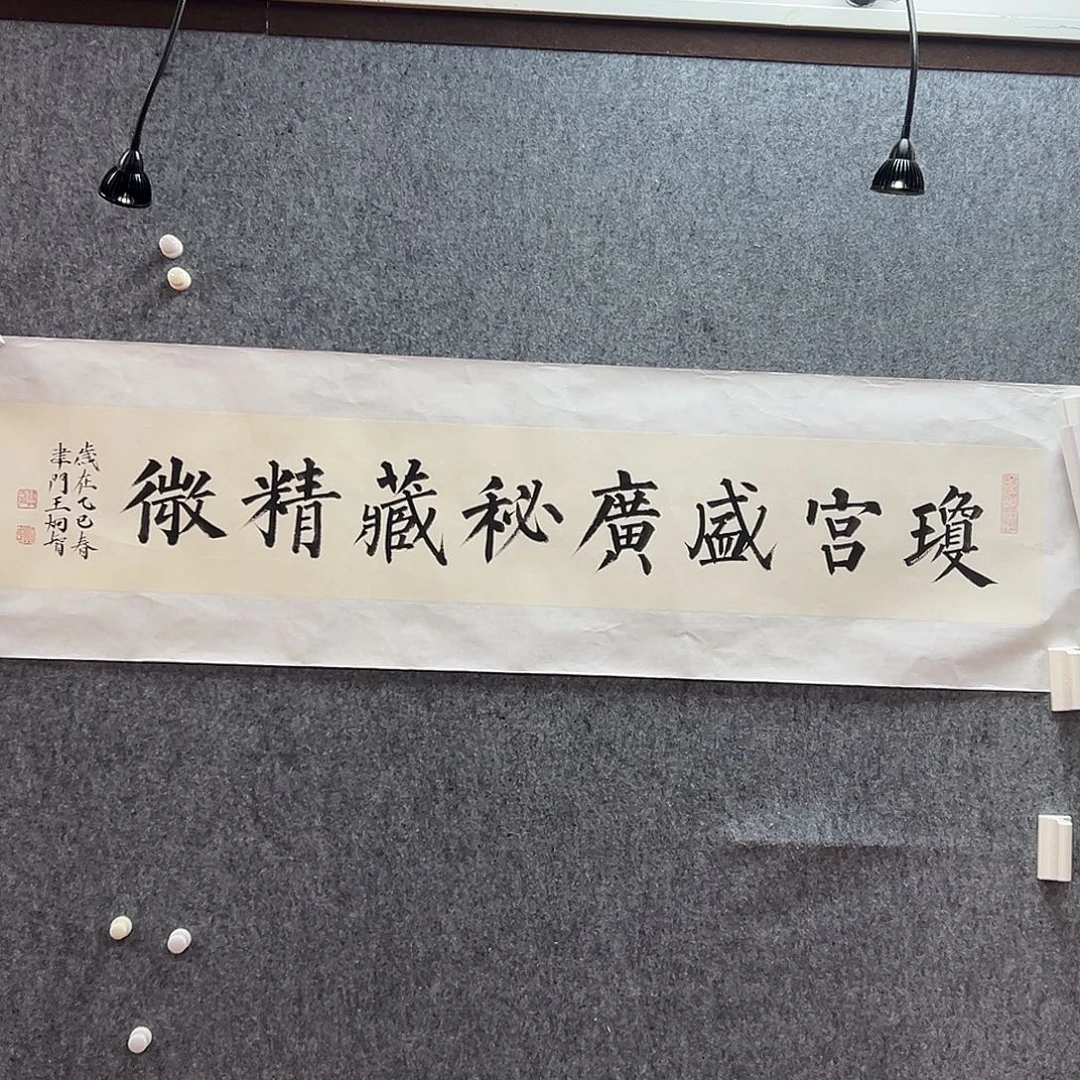 瓊宮盛廣秘藏精微
歲在乙巳春
津門王炯智